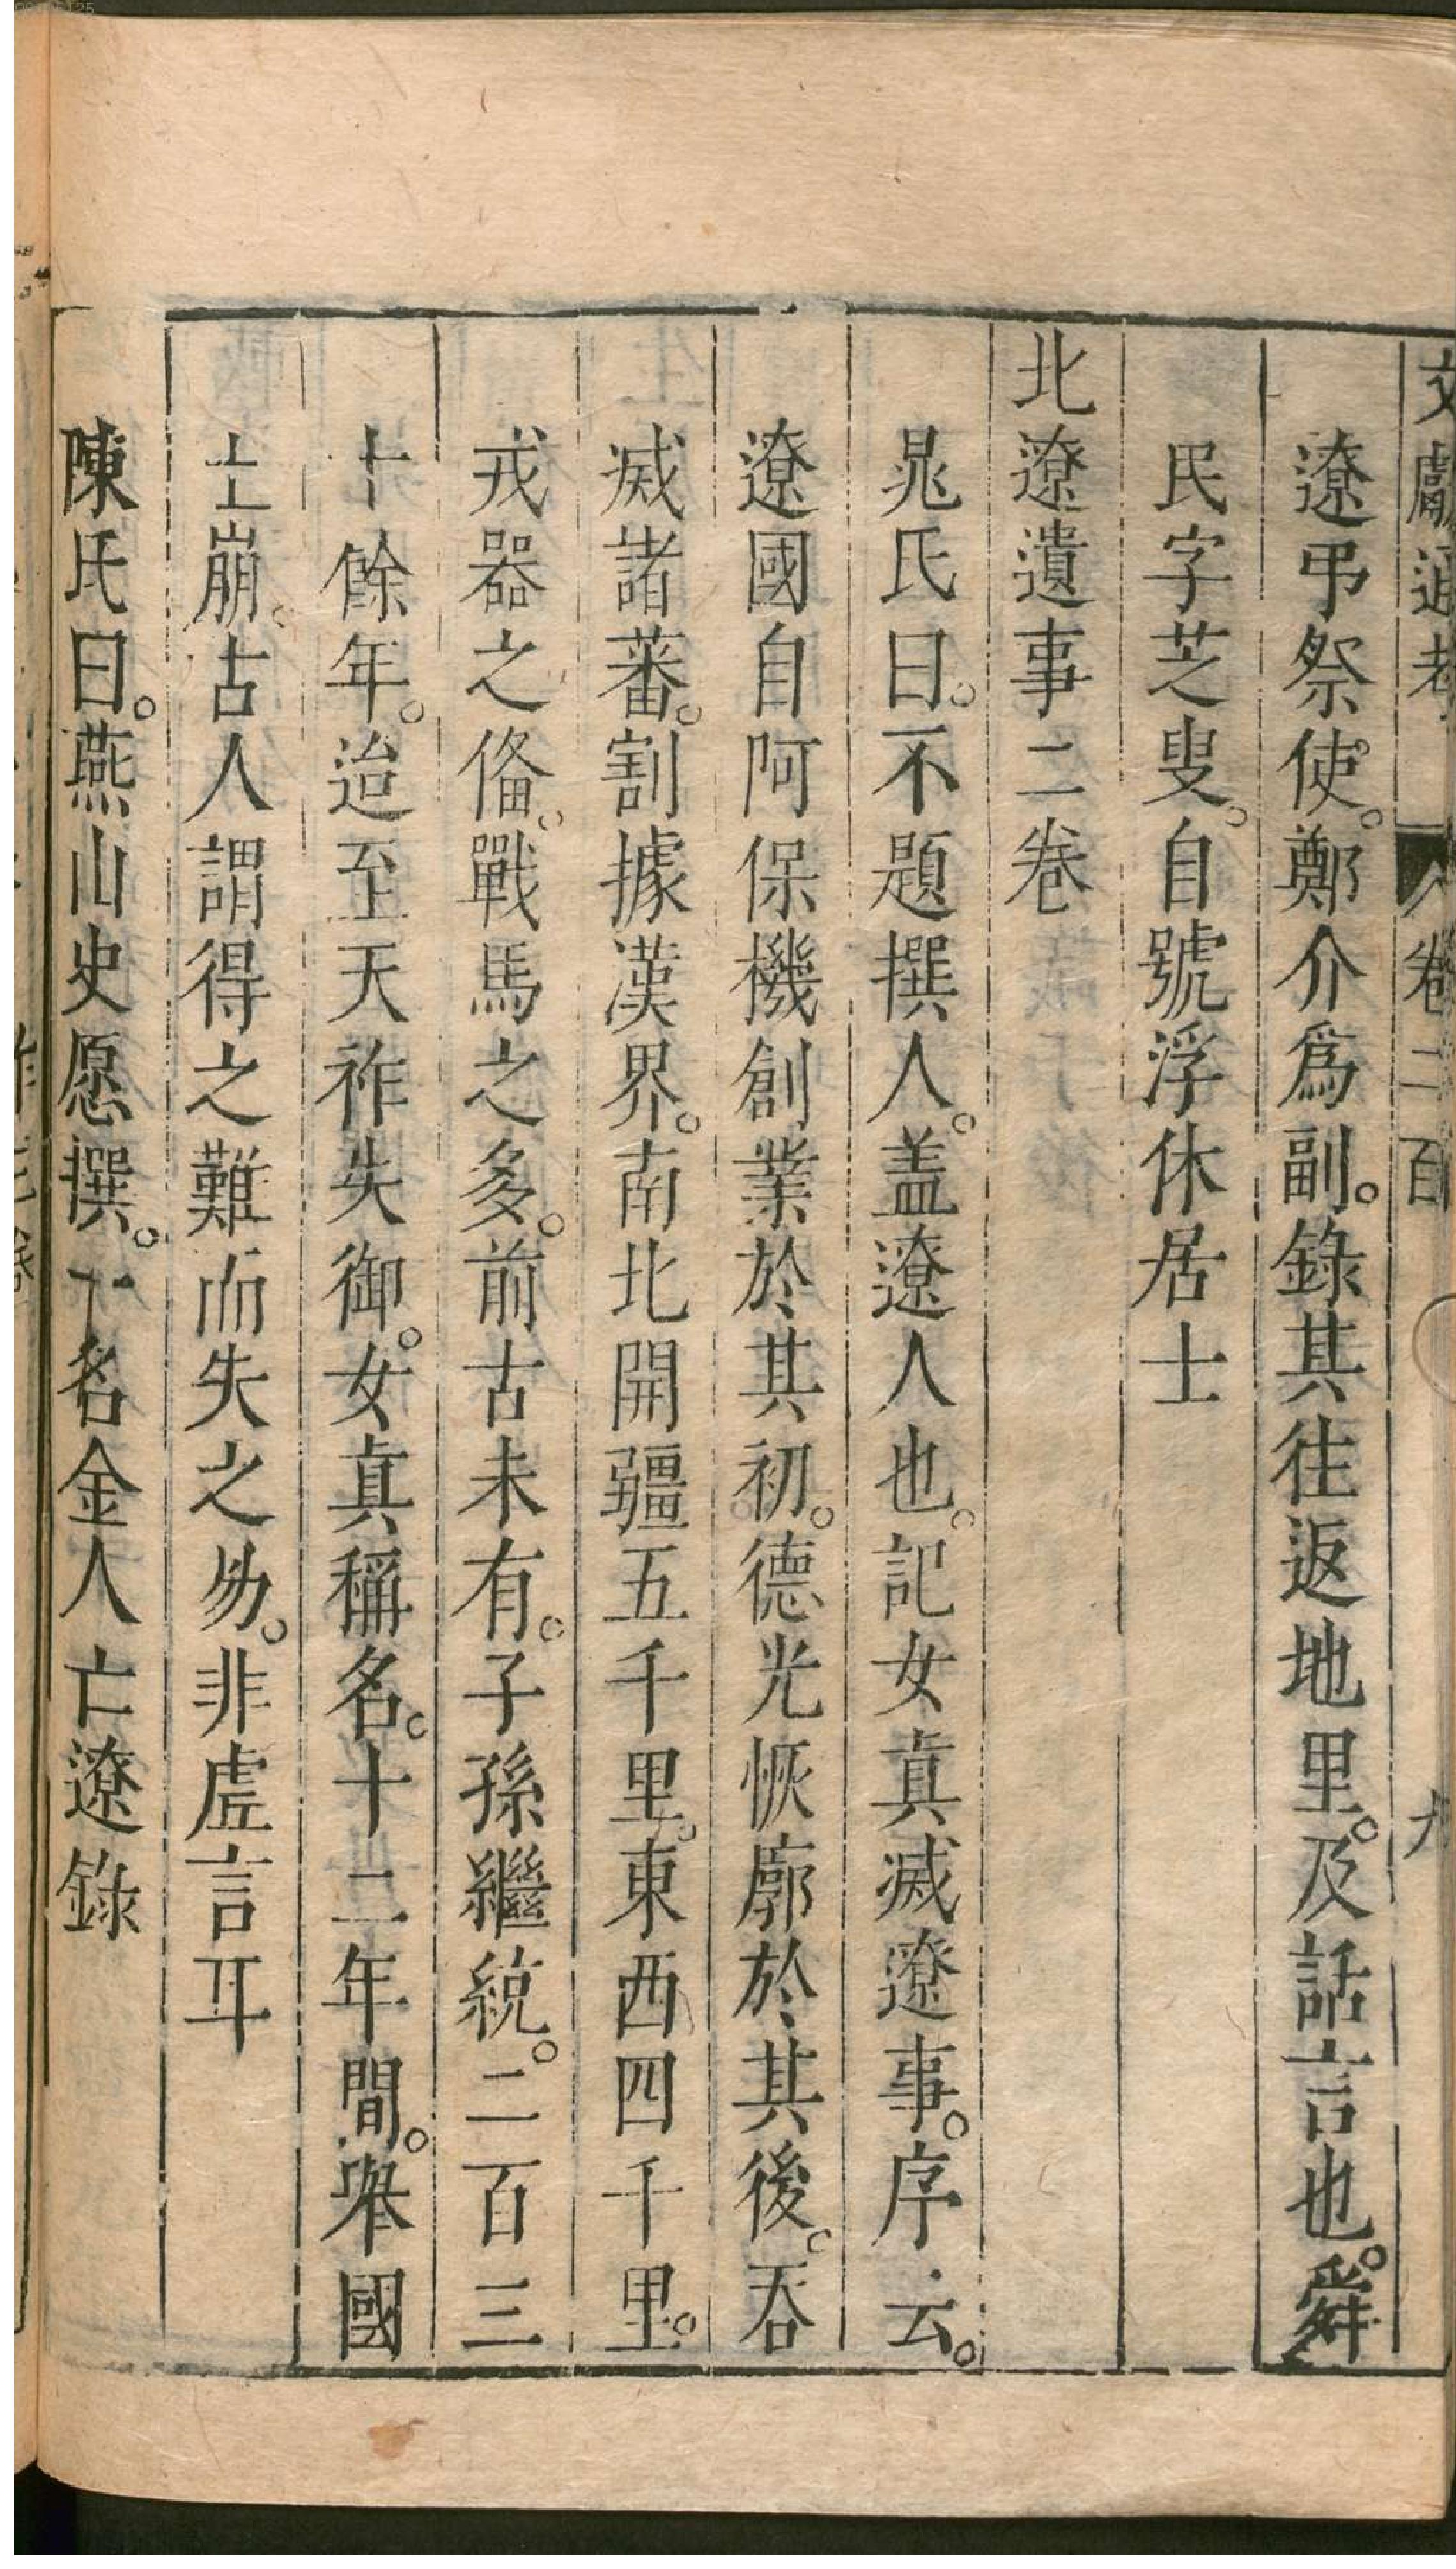 文獻通考 卷二百 九
遼弔祭使。鄭介爲副。錄其往返地里。及話言也。舜
民字芝叟。自號浮休居士
北遼遺事二卷
晁氏曰。不題撰人。盖遼人也。記女真滅遼事。序云。
遼國自阿保機創業於其初。德光恢廓於其後。吞
滅諸蕃。割據漢界。南北開疆五千里。東西四千里。
戎器之俻。戰馬之多。前古未有。子孫繼統。二百三
十餘年。迨至天祚失御。女真稱名。十二年間。舉國
土崩。古人謂得之難而失之易。非虛言耳
陳氏曰。燕山史愿撰。一名金人亡遼錄